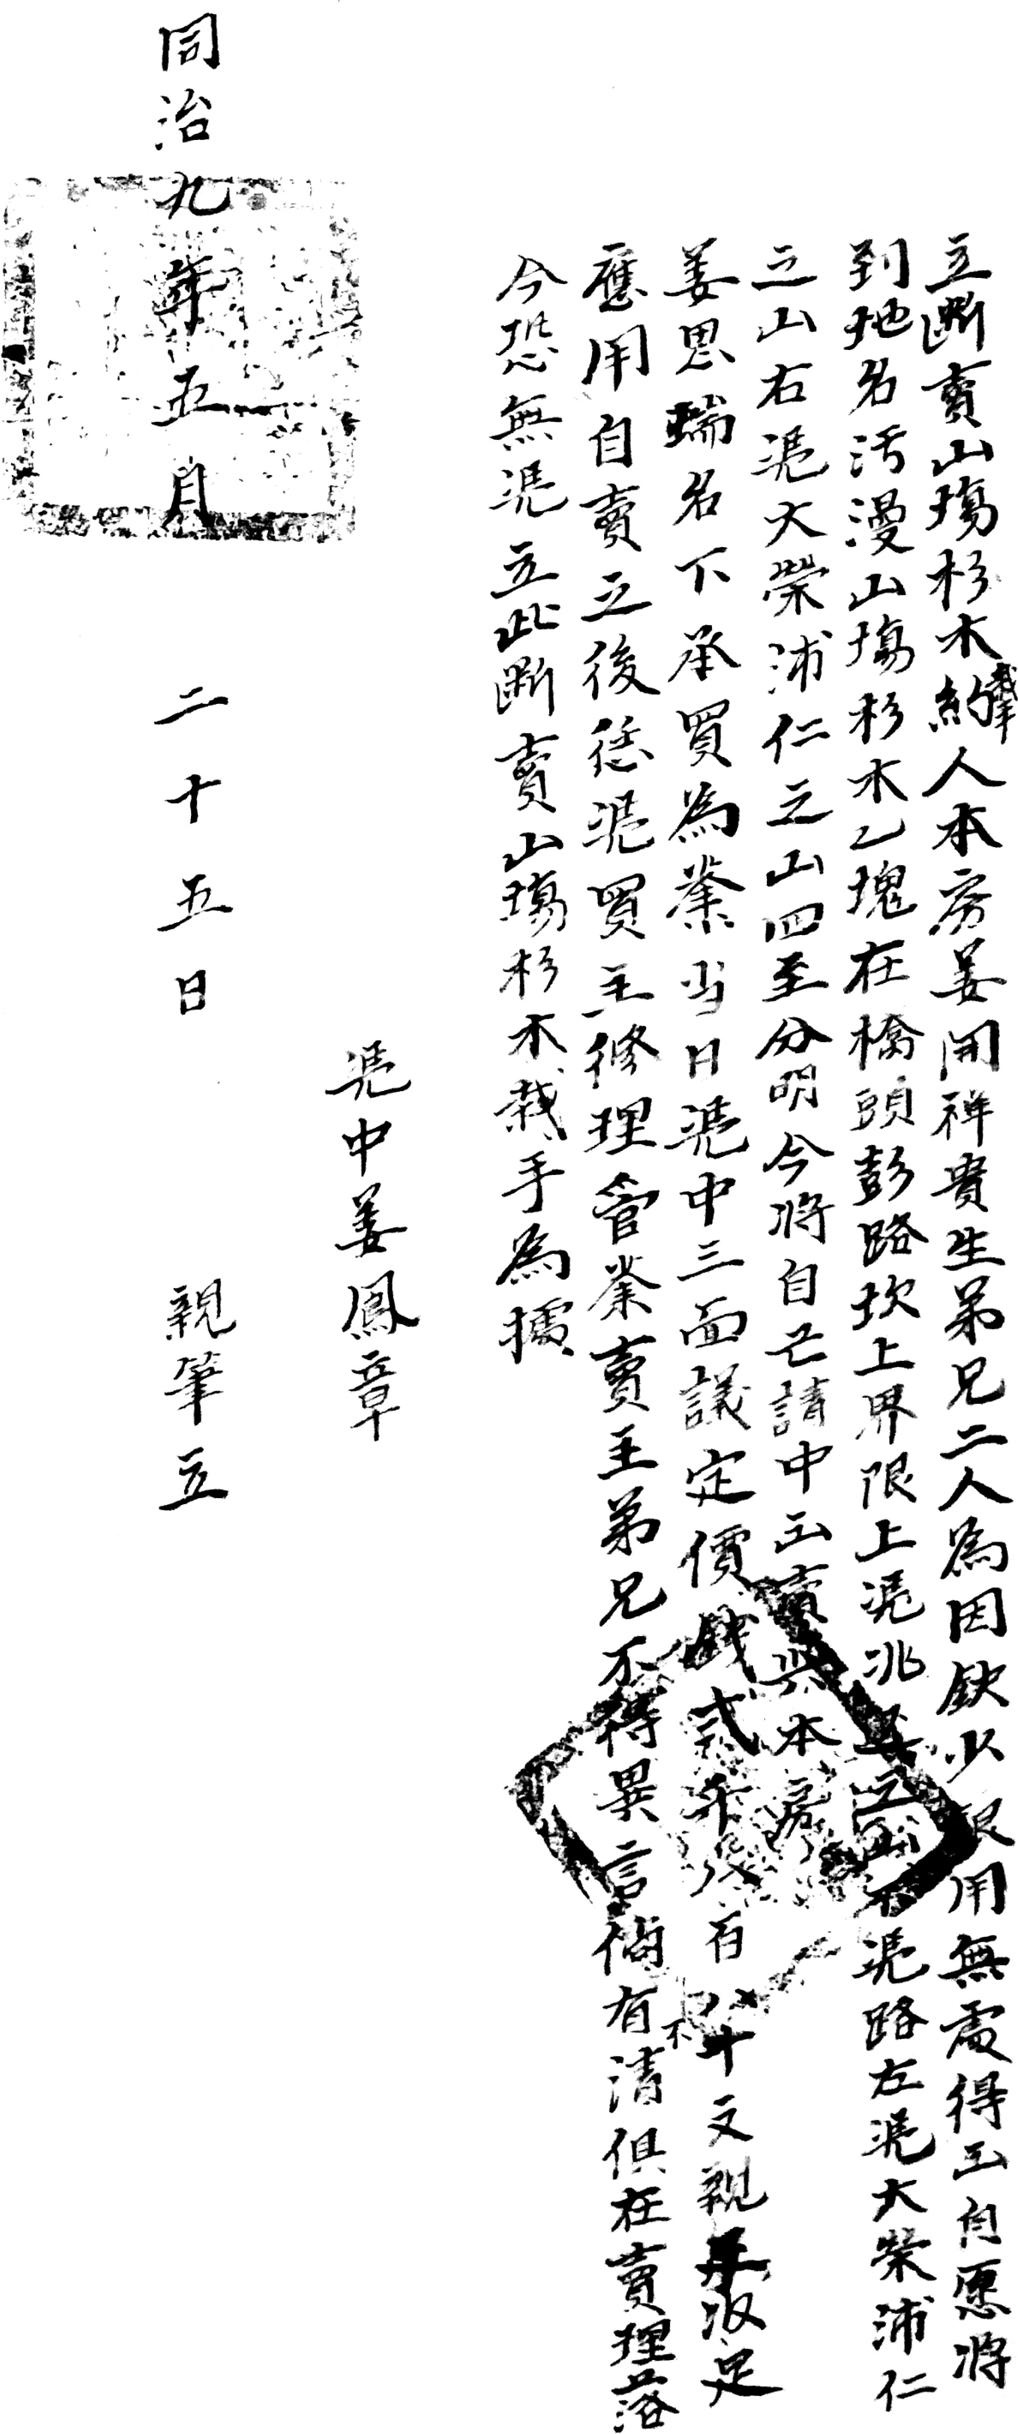 立断賣山塲杉木栽手約人本房姜開祥貴生弟兄二人為因缺少銀用無處得出自愿將
到地名汚漫山塲杉木乙塊在橋頭彭路坎上界限上凭兆姜之山下凭路左凭大榮浦仁
之山右凭大榮浦仁之山四至分明今將自己請中出賣與本房
姜思瑞名下承買為業当日凭中三面議定價錢弍千八百八十文親手收足
應用自賣之後恁凭買主修理管業賣主弟兄不得異言倘有不清俱在賣理落
今恐無凭立此断賣山塲杉木栽手為據
凭中姜鳳章
同治九年五月二十五日 親筆立